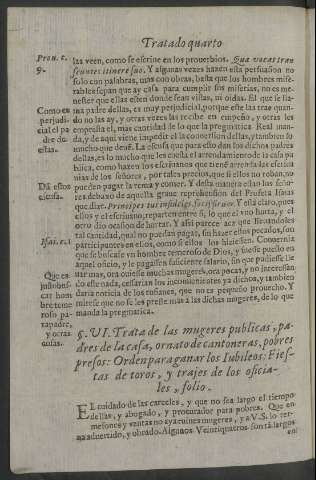 Tratado quarto
Prou. c. 9.
las veen, como se escriue en los prouerbios. Quæ vocat tran
seuntes itinere suo. Y algunas vezes hazen esta persuasion no
solo con palabras, mas con obras, basta que los hombres mise-
rables sepan que ay casa para cumplir sus miserias, no es me-
nester que ellas esten donde sean vistas, ni oidas. El que se lla-
ma padre dellas, es muy perjudicial, porque
do no las ay, y otras vezes las recibe en empeño, y otras les
empresta el, mas cantidad de lo que la pragmatica Real man-
da, y de aqui viene impedir el la conuersion dellas, y tambien
mucho que dessa. La escusa que para esto dan los dichos padres
dellas, es lo mucho que les cuesta el arrendamiento de la casa pu
blica, como hazen los escriuanos que tienen arrendadas
de los señores, por tales precios, que si ellos no roban, no
pueden pagar la renta y comer. Y desta manera estan los seño-
res debaxo de aquella graue reprehension del Profeta Isaias
que dize. Principes tui infideles, socij furum. Y está claro, pues
ellos y el escriuano, reparten entre si, lo que el vno hurta, y el
otro dio ocasion de hurtar. Y assi parece
tal cantidad, qual no puedan pagar, sin hazer estos pecados, son
participantes en ellos, como si ellos los hiziessen. Conuernia
que se buscasse vn hombre temeroso de Dios, y
aquel oficio, y le pagassen suficiente salario, sin que pudiesse lle
uar mas, ora ouiesse muchas mugeres, ora pocas, y no interessan
do este nada, cessarian los inconuinientes ya dichos, y tambien
daria noticia de los rufianes, que no es pequeño prouecho. Y
mirese que no se les preste mas a las dichas mugeres, de lo que
manda la pragmatica.
Como es
perjudi-
cial el pa
dre de-
stas.
Dà estos
escusa.
Isai. c. 1.
Que es
justo bus-
car hom
bre teme
roso pa-
ra padre,
y otras
cosas.
§. VI. Trata de las mugeres publicas, pa-
dres de la casa, ornato de cantoneras, pobres
presos: Orden para ganar los Iubileos: Fies-
tas de toros, y trajes de los oficia-
les, folio.
EL cuidado de las carceles, y que no sea largo el tiempo
dellas, y abogado, y procurador para pobres. Que en
mesones y ventas no aya ruines mugeres, a V.S. lo ter-
na aduertido, y obrado. Algunos Veintiquatros son tã largos
en